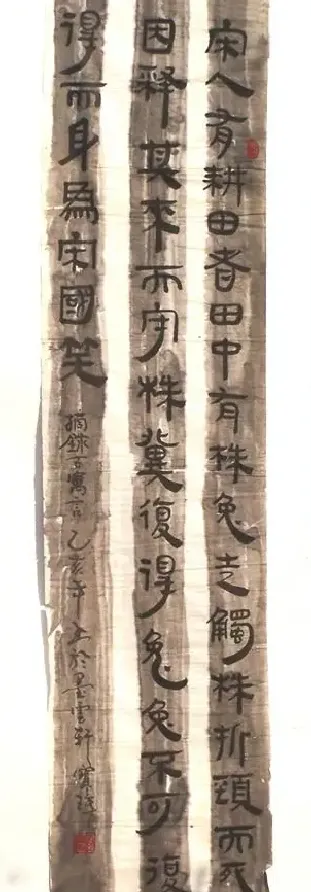 宋人有耕田者田中有株兔走觸株折頸而死
因釋其耒而守株冀復得兔兔不可復
得而身為宋國笑
摘錄古寓言乙亥年於墨雲軒